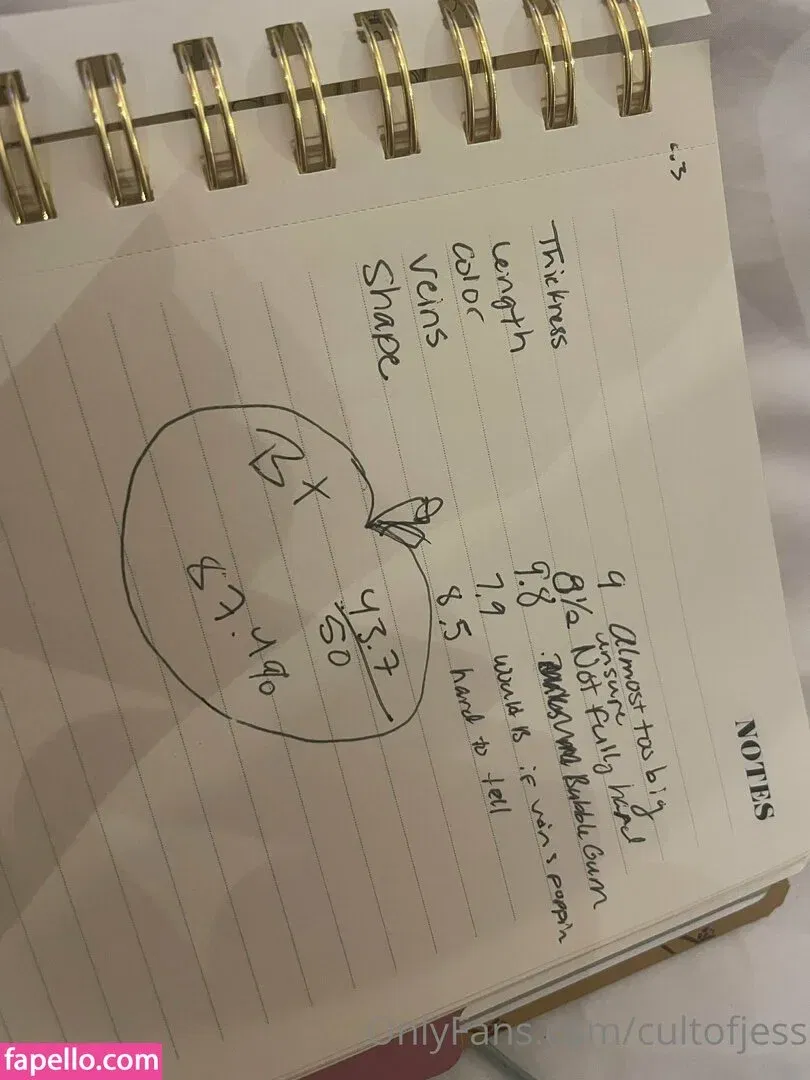 NOTES
Thickness 9 Almost too big
unsure
Length 8½ Not fully hard
Color 9.8 Bubble Gum
Veins 7.9 would B if veins poppin
Shape 8.5 hard to tell
43.7
50
B+
87.4%
OnlyFans.com/cultofjess
fapello.com